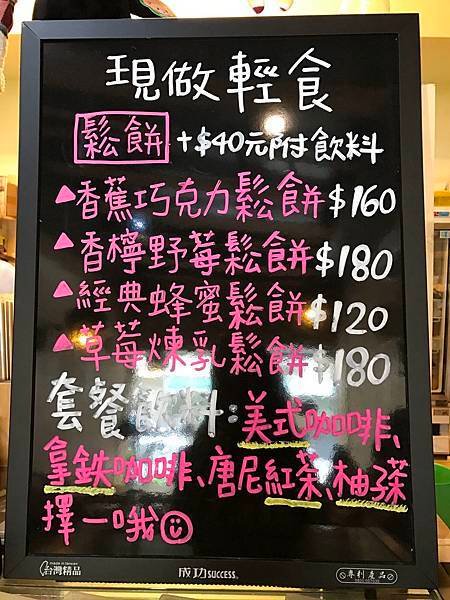 現做輕食
鬆餅 +$40元附飲料
▲香蕉巧克力鬆餅$160
▲香檸野莓鬆餅$180
▲經典蜂蜜鬆餅$120
▲草莓煉乳鬆餅$180
套餐飲料:美式咖啡、
拿鐵咖啡、唐尼紅茶、柚子茶
擇一哦☺
台灣精品 成功 SUCCESS 專利產品